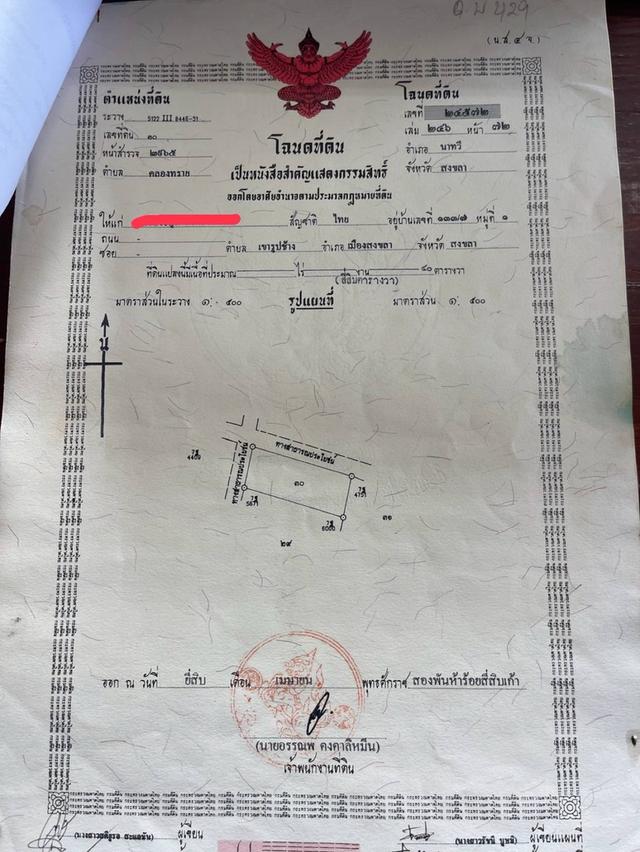 ด น 429
(น.ส. ๔ จ.)
ตำแหน่งที่ดิน
ระวาง 5122 III 8446-31
เลขที่ดิน ๓๐
หน้าสำรวจ ๒๙๖๕
ตำบล คลองทราย
โฉนดที่ดิน
เลขที่ ๒๔๕๗๒
เล่ม ๒๔๖ หน้า ๗๒
อำเภอ นาทวี
จังหวัด สงขลา
โฉนดที่ดิน
เป็นหนังสือสำคัญแสดงกรรมสิทธิ์
ออกโดยอาศัยอำนาจตามประมวลกฎหมายที่ดิน
ให้แก่ สัญชาติ ไทย อยู่บ้านเลขที่ ๑๓๗/๗ หมู่ที่ ๑
ถนน -
ซอย - ตำบล เขารูปช้าง อำเภอ เมืองสงขลา จังหวัด สงขลา
ที่ดินแปลงนี้มีเนื้อที่ประมาณ - ไร่ - งาน ๔๐ ตารางวา
(สี่สิบตารางวา)
มาตราส่วนในระวาง ๑ : ๕๐๐ รูปแผนที่ มาตราส่วน ๑ : ๕๐๐
น
ทางสาธารณประโยชน์
ทางสาธารณประโยชน์
4409
๓๐
4751
5671
6000
๓๑
๒๙
ออก ณ วันที่ ยี่สิบ เดือน เมษายน พุทธศักราช สองพันห้าร้อยสี่สิบเก้า
(นายอรรณพ คงคาลิหมีน)
เจ้าพนักงานที่ดิน
ผู้เขียน
ผู้เขียนแผนที่